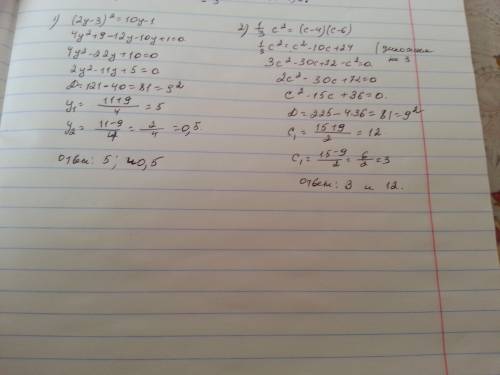 1) (2y-3)² = 10y-1
4y²+9-12y-10y+1=0
4y²-22y+10=0
2y²-11y+5=0
D=121-40=81=9²
y₁= (11+9)/4 =5
y₂= (11-9)/4 = 2/4 =0,5.
ответ: 5; 0,5
2) 1/3 c² = (c-4)(c-6)
1/3 c² = c²-10c+24 | умножаем на 3
3c²-30c+72-c²=0.
2c²-30c+72=0
c²-15c+36=0.
D=225-4·36=81=9²
c₁= (15+9)/2 =12
c₁= (15-9)/2 = 6/2 =3
ответ: 3 и 12.